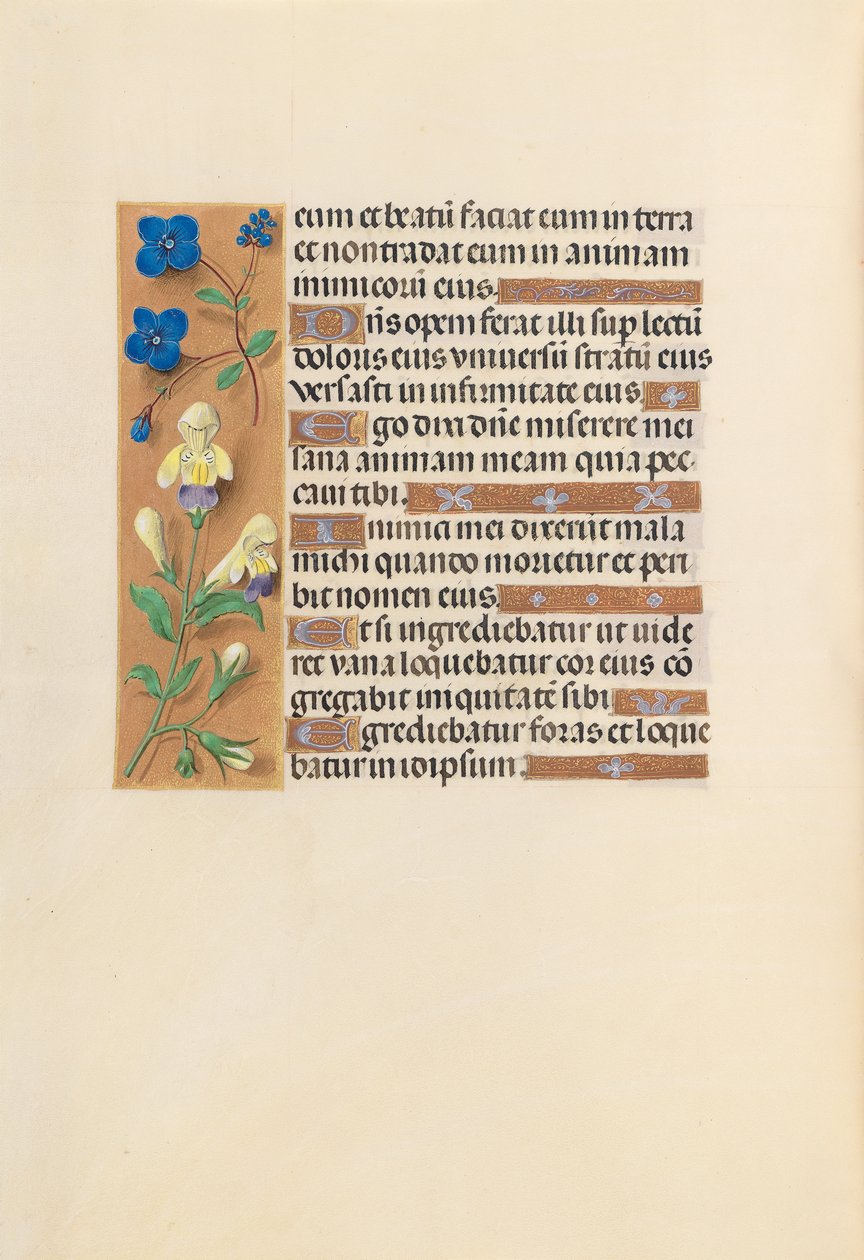 eum et beatū faciat eum in terra
et non tradat eum in animam
inimicorū eius.
Dn̄s opem ferat illi sup̱ lectū
doloris eius vniuersū stratū eius
versasti in infirmitate eius.
Ego dixi dn̄e miserere mei
sana animam meam quia pec
caui tibi.
Inimici mei dixerūt mala
michi quando morietur et peri
bit nomen eius.
Et si ingrediebatur ut uide
ret vana loquebatur cor eius cō
gregabit iniquitatē sibi
Egrediebatur foras et loque
batur in idipsum.